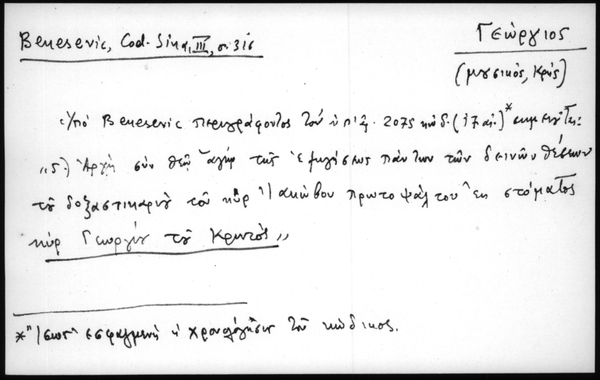 Benesevic, Cod. Sina, III, σ. 316
Γεώργιος
(μουσικός, Κρής)
Ὑπό Benesevic περιγράφοντος τόν ὑπ' ἀρ. 2075 κώδ. (17 αἰ.)* σημειοῦται:
"5) Ἀρχή σύν θεῷ ἁγίῳ τῆς ἐξηγήσεως πάντων τῶν δεινῶν θέσεων
τοῦ δοξαστικαρίου τοῦ κύρ Ἰακώβου πρωτοψάλτου ἐκ στόματος
κύρ Γεωργίου τοῦ Κρητός"
* Ἴσως ἐσφαλμένη ἡ χρονολόγησις τοῦ κώδικος.